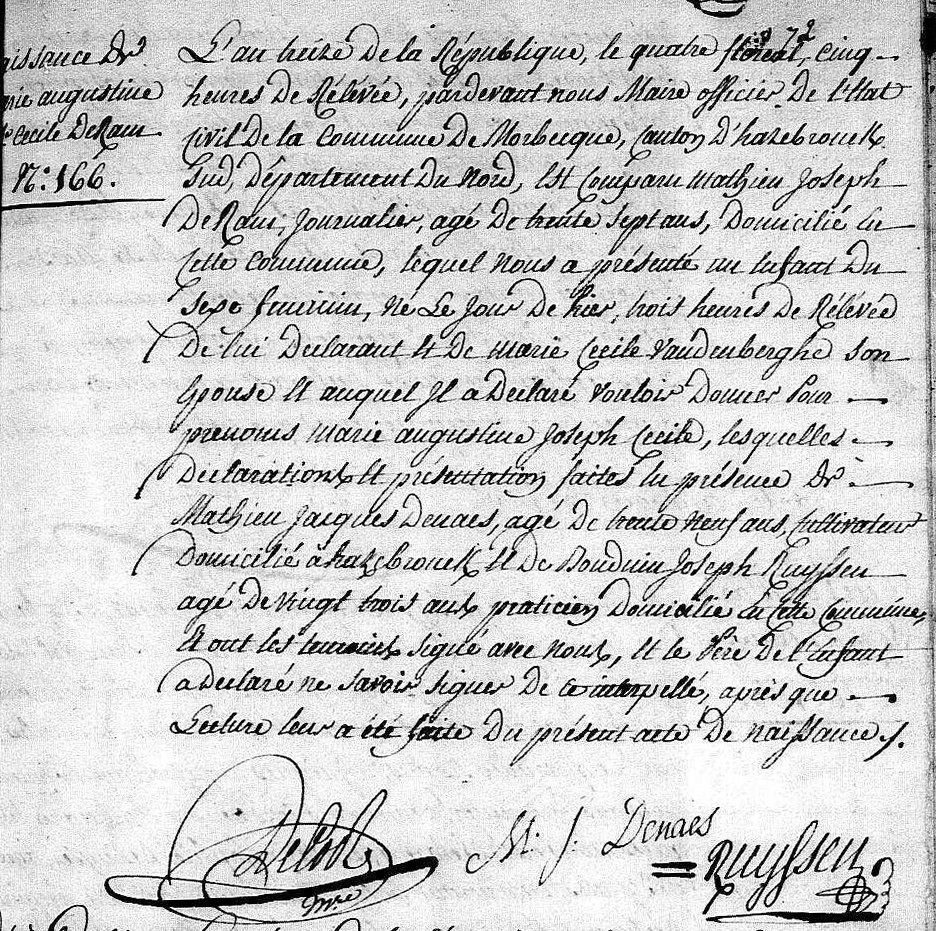 aissance de
arie augustine
Cecile DeRam
N.º 166.
L'an treize de la République, le quatre floréal, cinq
heures de Rélévée, pardevant nous Maire officier de l'Etat
Civil de la Commune de Morbecque, Canton d'hazebrouck
Sud, Département du Nord, Est Comparu Mathieu Joseph
DeRam, Journalier, agé de trente Sept ans, Domicilié en
Cette Commune, lequel nous a présenté un Enfant du
Sexe feminin, né Le Jour de hier, trois heures de Rélévée
De lui Declarant Et De marie Cecile Vandenberghe Son
Epouse Et auquel Il a Declaré Vouloir Donner Pour
prenoms marie augustine Joseph Cecile, lesquelles
Declarations Et présentation faites En présence de
Mathieu Jacques Denaes, agé de trente neuf ans, Cultivateur
Domicilié à hazebrouck Et De Bouduin Joseph Ruyssen
agé De vingt trois ans praticien Domicilié En Cette Commune,
Et ont les temoins signé avec nous, Et le Père De l'Enfant
a Declaré ne Savoir Signer de ce interpellé, après que
Lecture leur a été faite Du présent acte De naissance ./.
M. J. Denaes
Ruyssen
mre